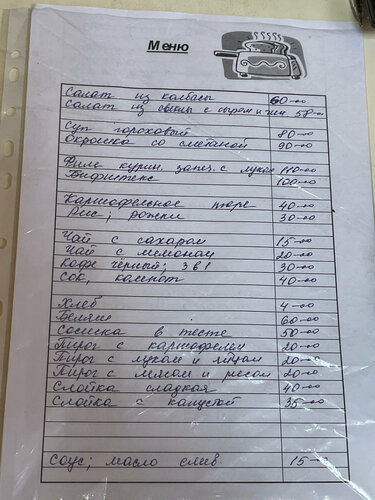 Меню
Салат из колбасы 60-00
Салат из свеклы с сыром и чесн 58-00
Суп гороховый 80-00
Окрошка со сметаной 90-00
Филе курин. запеч. с луком 110-00
Бифштекс 100-00
Картофельное пюре 40-00
Рис; рожки 30-00
Чай с сахаром 15-00
Чай с лимоном 20-00
Кофе чёрный; 3 в 1 30-00
Сок, компот 40-00
Хлеб 4-00
Беляш 60-00
Сосиска в тесте 50-00
Пирог с картофелем 20-00
Пирог с луком и яйцом 20-00
Пирог с мясом и рисом 20-00
Слойка сладкая 40-00
Слойка с капустой 35-00
Соус; масло слив 15-00